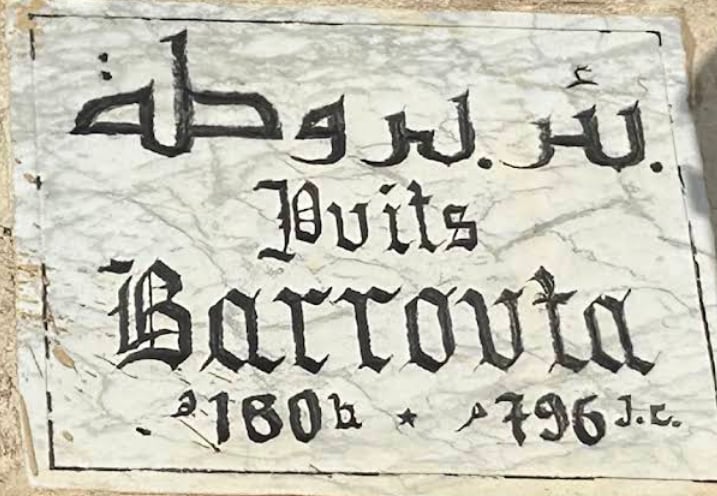 بئر بروطة
Pvits
Barrovta
ه 180 h * م 796 J.C.